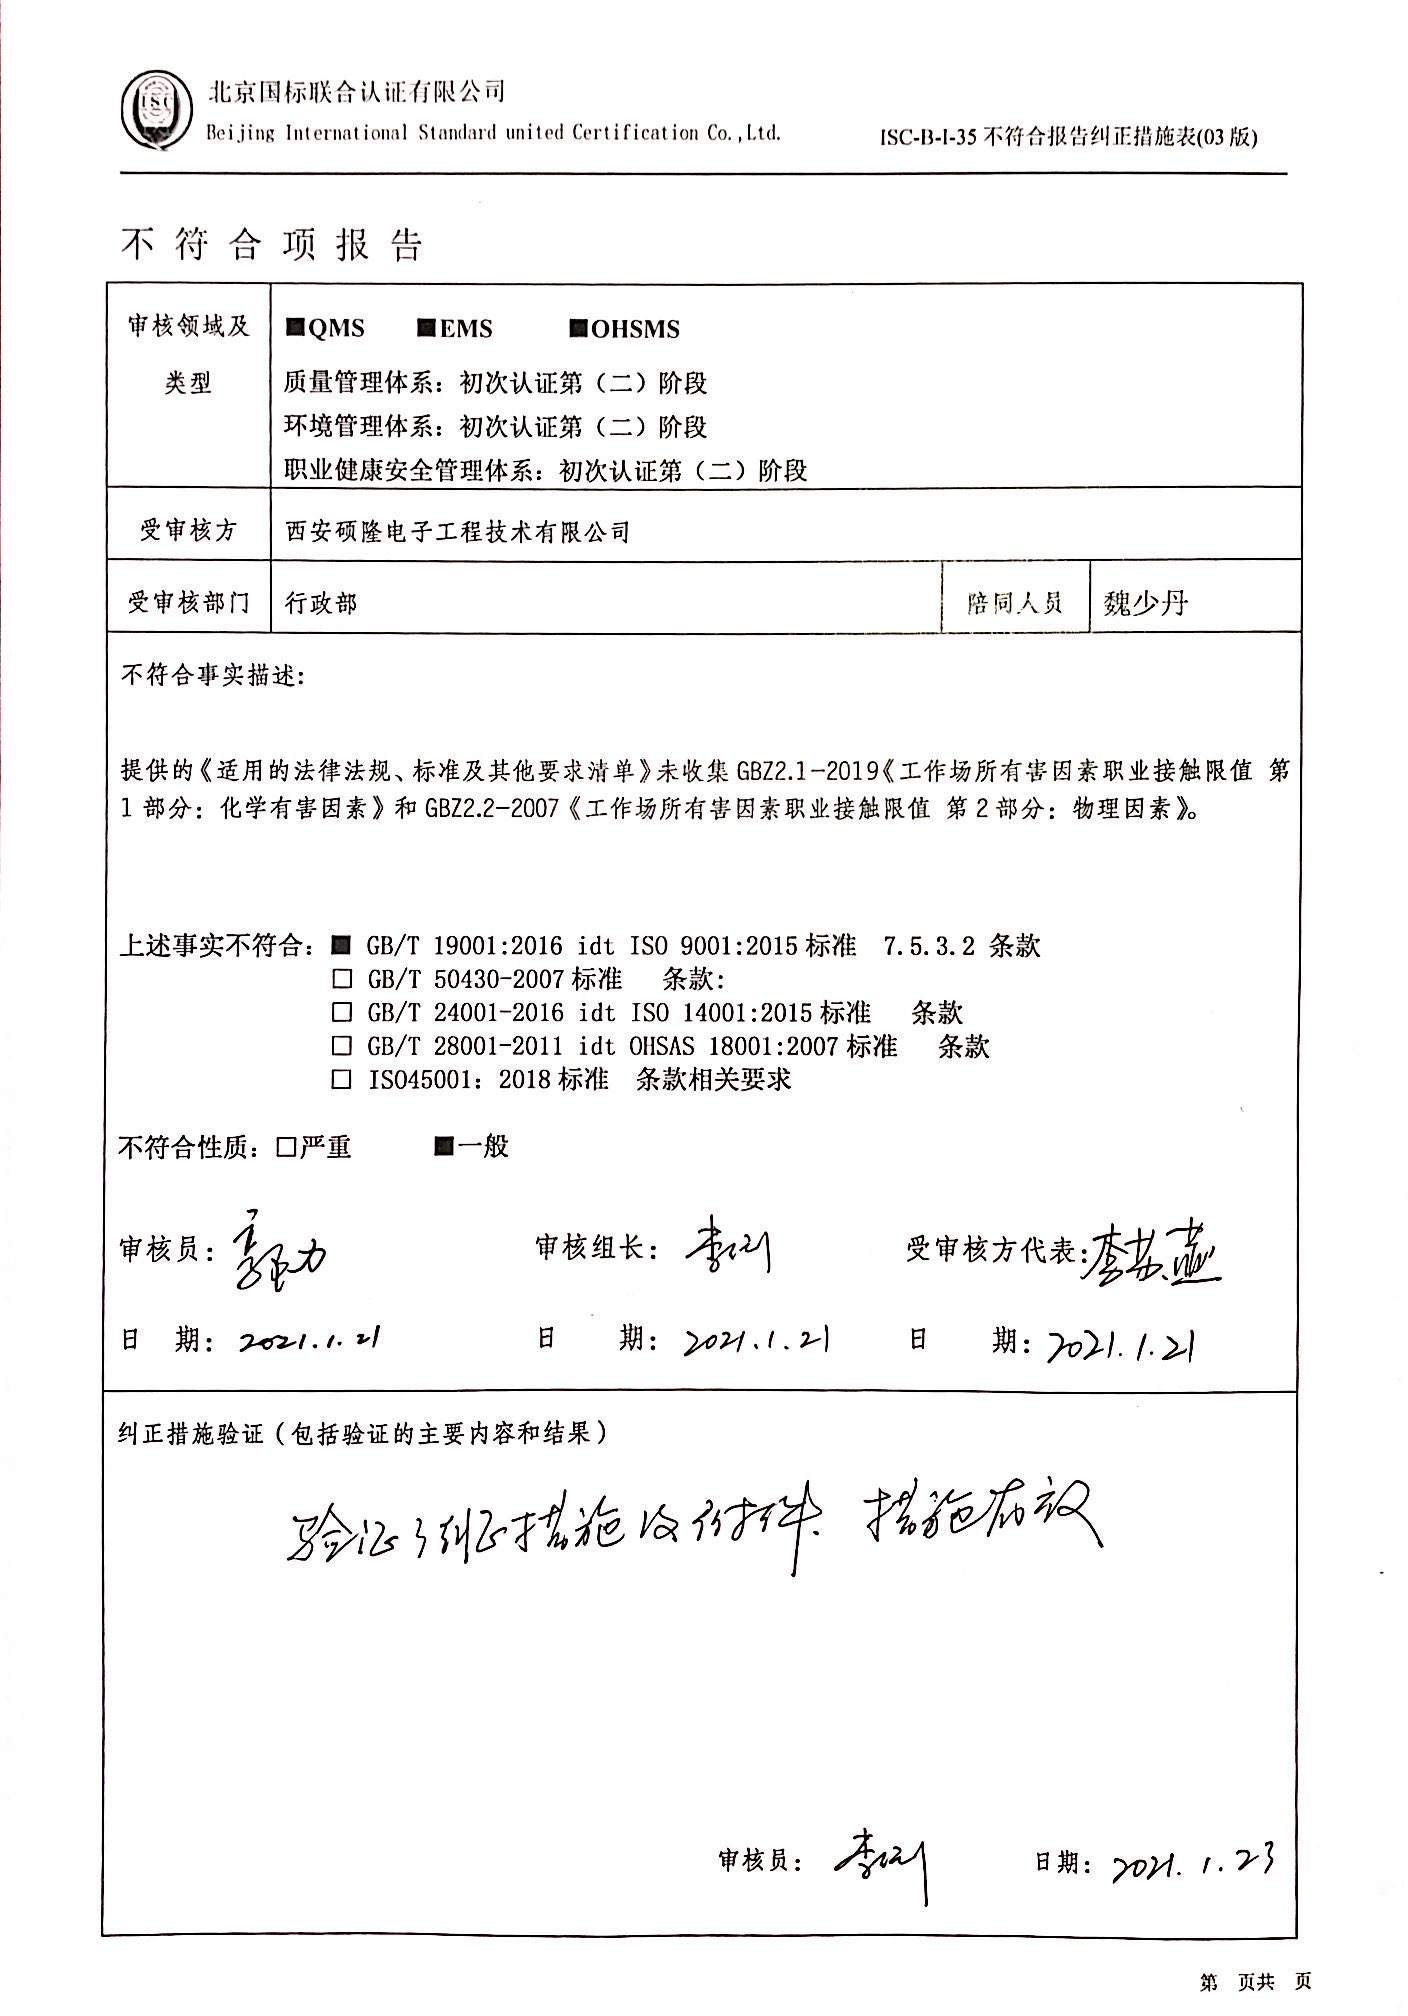 ISC
北京国标联合认证有限公司
Beijing International Standard united Certification Co.,Ltd.
ISC-B-I-35 不符合报告纠正措施表(03 版)
不符合项报告
审核领域及
类型
■QMS ■EMS ■OHSMS
质量管理体系：初次认证第（二）阶段
环境管理体系：初次认证第（二）阶段
职业健康安全管理体系：初次认证第（二）阶段
受审核方 西安硕隆电子工程技术有限公司
受审核部门 行政部 陪同人员 魏少丹
不符合事实描述：
提供的《适用的法律法规、标准及其他要求清单》未收集 GBZ2.1-2019《工作场所有害因素职业接触限值 第
1 部分：化学有害因素》和 GBZ2.2-2007《工作场所有害因素职业接触限值 第 2 部分：物理因素》。
上述事实不符合：■ GB/T 19001:2016 idt ISO 9001:2015 标准 7.5.3.2 条款
□ GB/T 50430-2007 标准 条款：
□ GB/T 24001-2016 idt ISO 14001:2015 标准 条款
□ GB/T 28001-2011 idt OHSAS 18001:2007 标准 条款
□ ISO45001：2018 标准 条款相关要求
不符合性质：□严重 ■一般
审核员： 审核组长： 受审核方代表：李苏燕
日 期：2021.1.21 日 期：2021.1.21 日 期：2021.1.21
纠正措施验证（包括验证的主要内容和结果）
验证了纠正措施及附件、措施有效
审核员： 日期：2021.1.23
第 页共 页